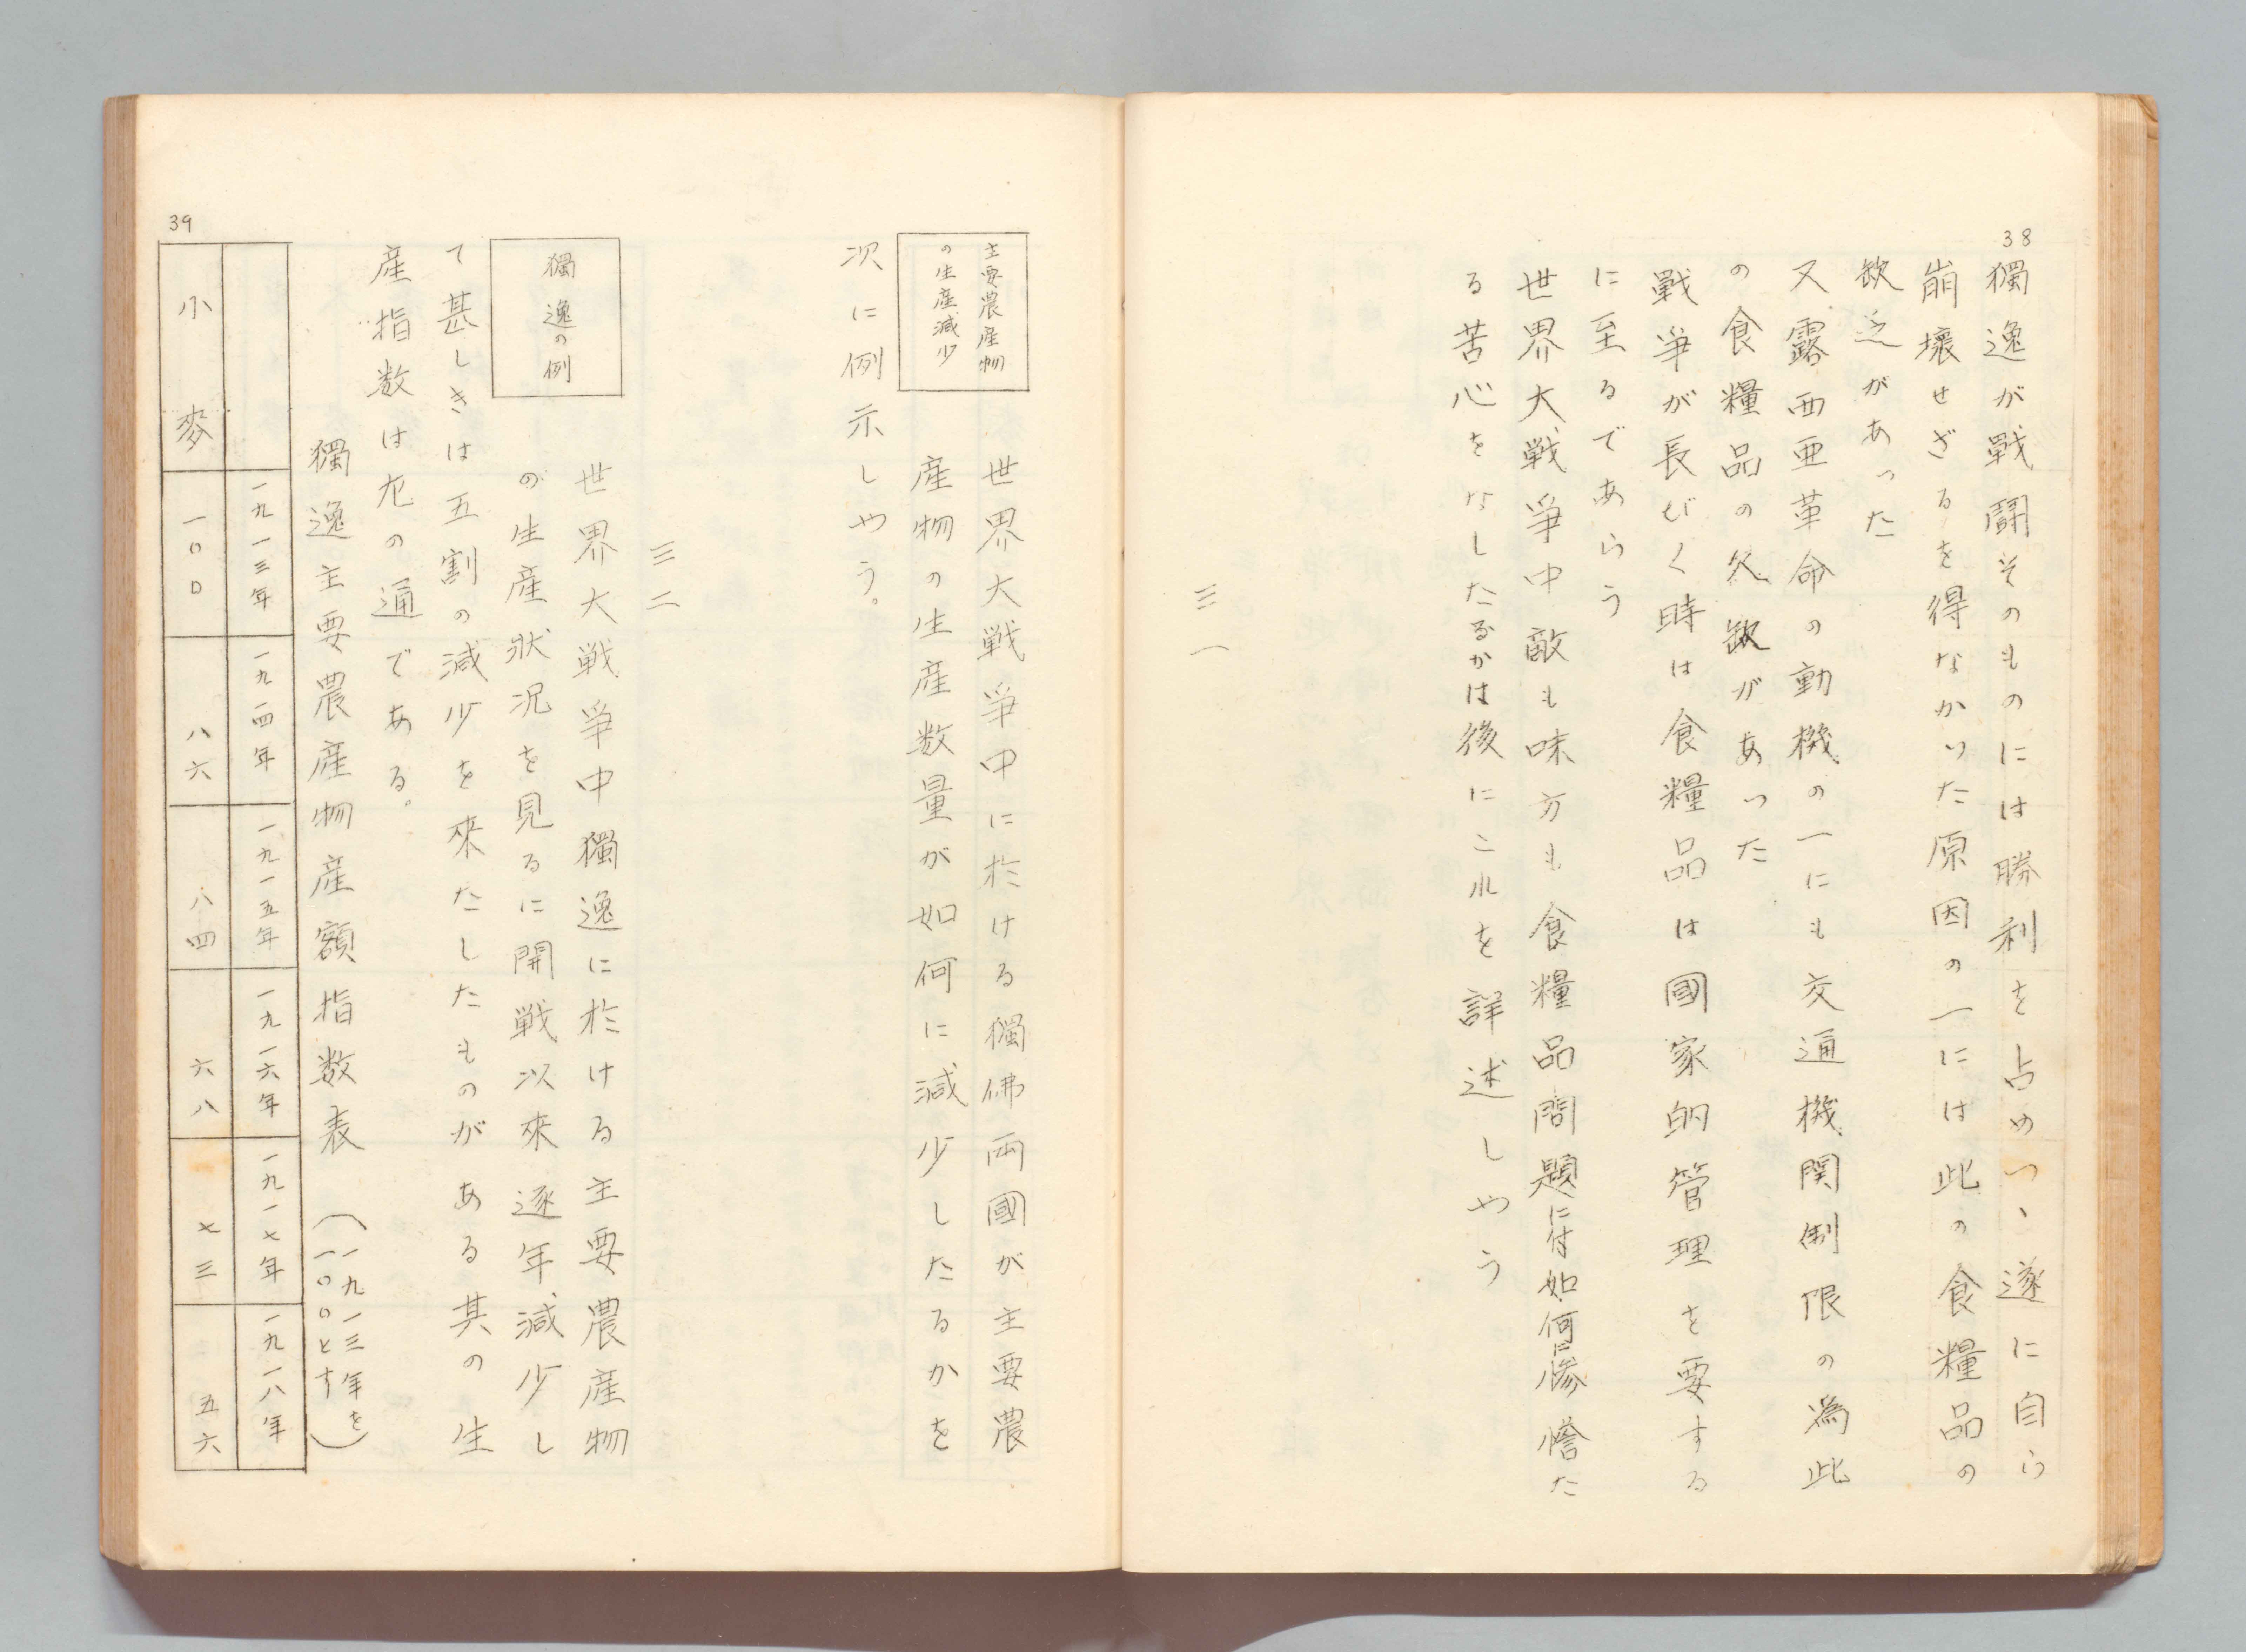 38
獨逸が戰鬪そのものには勝利を占めつヽ遂に自ら
崩壞せざるを得なかつた原因の一には此の食糧品の
欽乏があった
又露西亜革命の動機の一にも交通機関制限の為此
の食糧品の久欽があった
戰爭が長びく時は食糧品は國家的管理を要する
に至るであらう
世界大戦爭中敵も味方も食糧品問題に付如何に惨憺た
る苦心をなしたるかは後にこれを詳述しやう
三一
主要農産物
の生産減少
世界大戦爭中に於ける獨佛両國が主要農
産物の生産数量が如何に減少したるかを
次に例示しやう。
三二
獨逸の例
世界大戦爭中獨逸に於ける主要農産物
の生産狀況を見るに開戦以來逐年減少し
て甚しきは五割の減少を來たしたものがある其の生
産指数は左の通である。
獨逸主要農産物産額指数表（一九一三年を
一〇〇とす）
39
一九一三年 一九一四年 一九一五年 一九一六年 一九一七年 一九一八年
小麥 一〇〇 八六 八四 六八 七三 五六